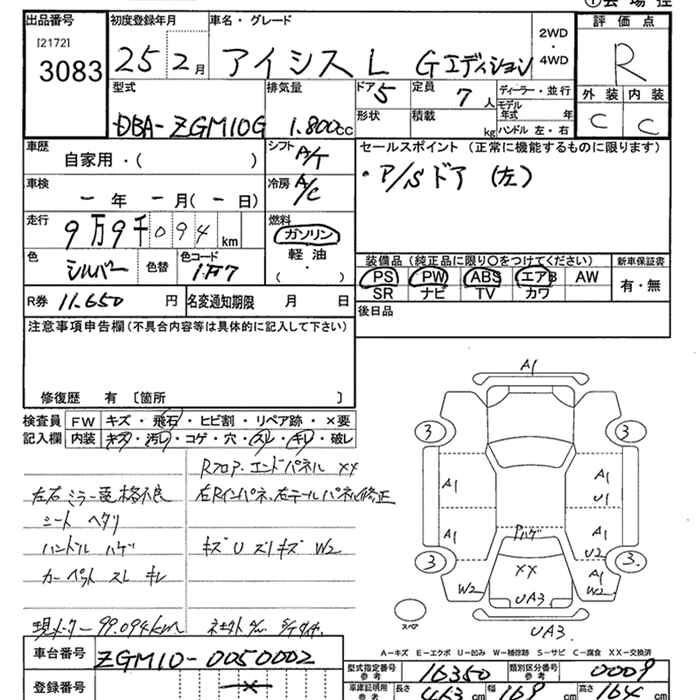 出品番号 初度登録年月 車名・グレード 2WD ・ 4WD 評価点
[2172]
3083 25 2月 アイシス L Gエディション R
型式 排気量 ドア 5 定員 7人 ディーラー・並行 外装 内装
DBA-ZGM10G 1.800cc 形状 積載 kg モデル年式 年 C C
ハンドル 左・右
車歴 自家用・( ) シフト A/T セールスポイント (正常に機能するものに限ります)
車検 ー年 ー月(ー日) 冷房 A/C ・P/Sドア (左)
走行 9万9千094km 燃料 ガソリン
軽油
・
( )
色 シルバー 色替 色コード 1F7
装備品 (純正品に限り〇をつけてください) 新車保証書
PS PW ABS エアB AW 有・無
SR ナビ TV カワ
R券 11.650円 名変通知期限 月 日 後日品
注意事項申告欄 (不具合内容等は具体的に記入して下さい)
修復歴 有 〔箇所 〕
検査員 FW キズ・飛石・ヒビ割・リペア跡・×要
記入欄 内装 キズ・汚レ・コゲ・穴・スレ・キレ・破レ
Rフロア.エンドパネル ××
左右ミラー 格不良 左Rインパネ、右テールパネル修正
シート ヘタリ
ハンドル ハゲ キズ U ズリキズ W2
カーペット スレ キレ
現メーター 99.094km
車台番号 ZGM10-0050002
登録番号
A1
3 3
A1 A1
U1
A1 ハゲ A1
U2
3 ×× 3.
W2 A1
W2
UA3
スペア UA3.
A-キズ E-エクボ U-凹み W-補修跡 S-サビ C-腐食 XX-交換済
型式指定番号 参考 16350 類別区分番号 参考 0009
車庫証明用 参考 長さ 463 cm 幅 169 cm 高さ 164 cm